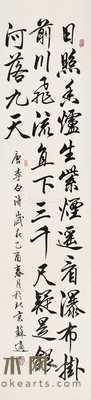 日照香爐生紫煙遥看瀑布掛
前川飛流直下三千尺疑是銀
河落九天
唐李白詩歲在乙酉春月於北京蘇適